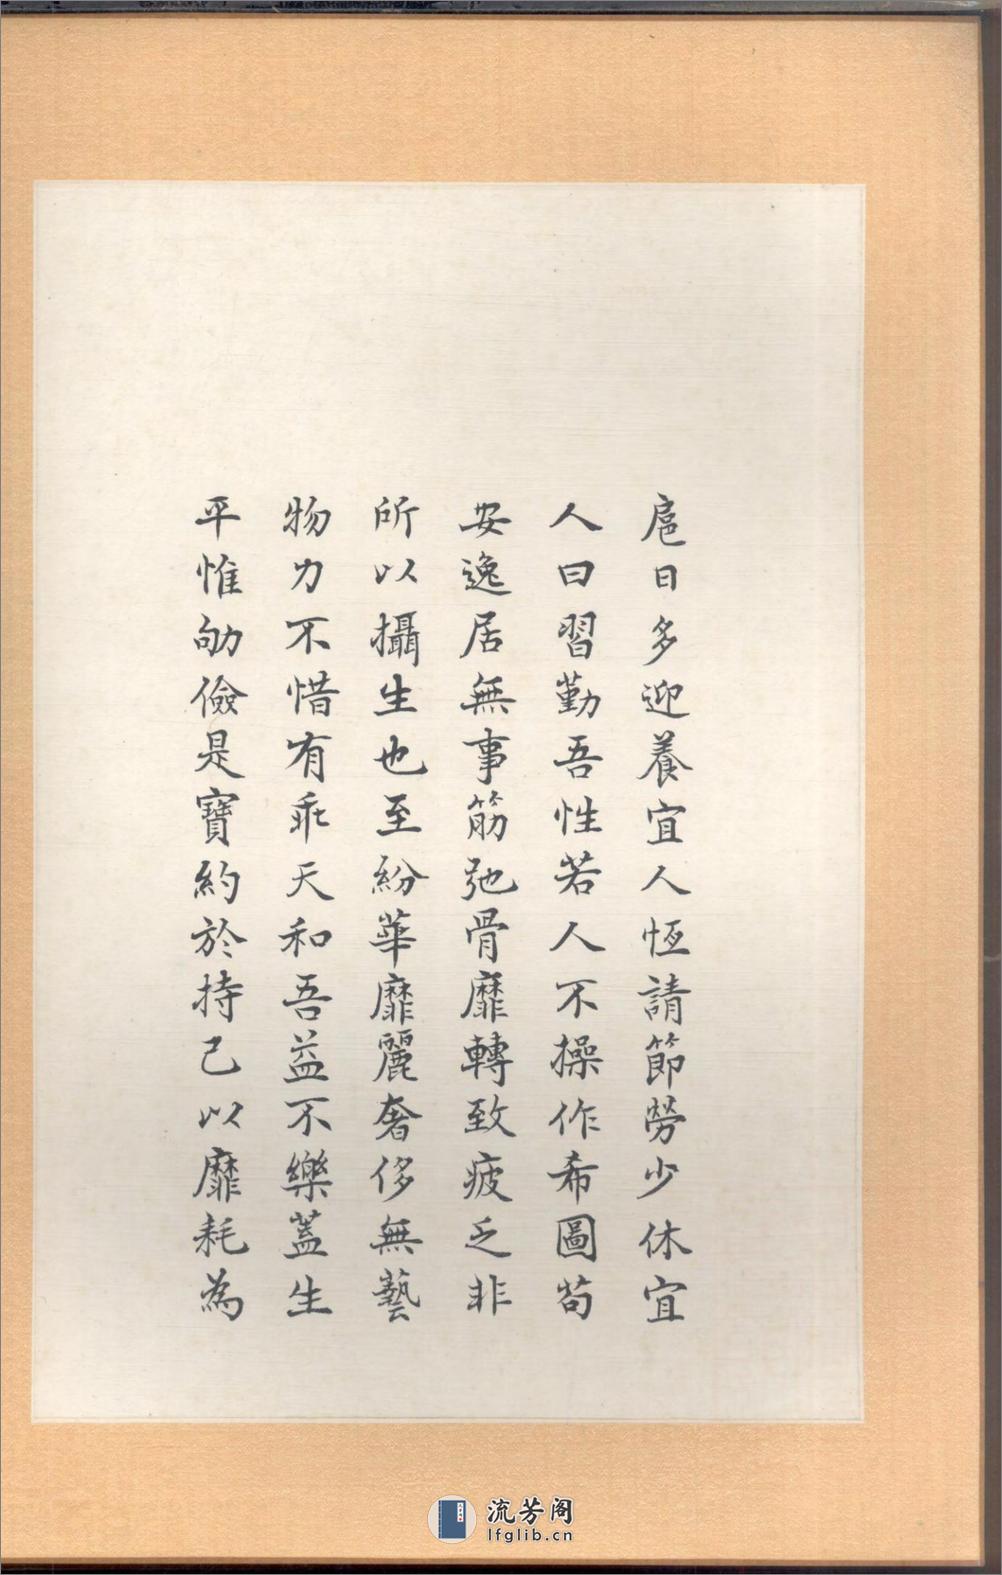 扈日多迎養宜人恆請節勞少休宜
人曰習勤吾性若人不操作希圖苟
安逸居無事筋弛骨靡轉致疲乏非
所以攝生也至紛華靡麗奢侈無藝
物力不惜有乖天和吾益不樂蓋生
平惟劬儉是寶約於持己以靡耗為
流芳阁
lfglib.cn